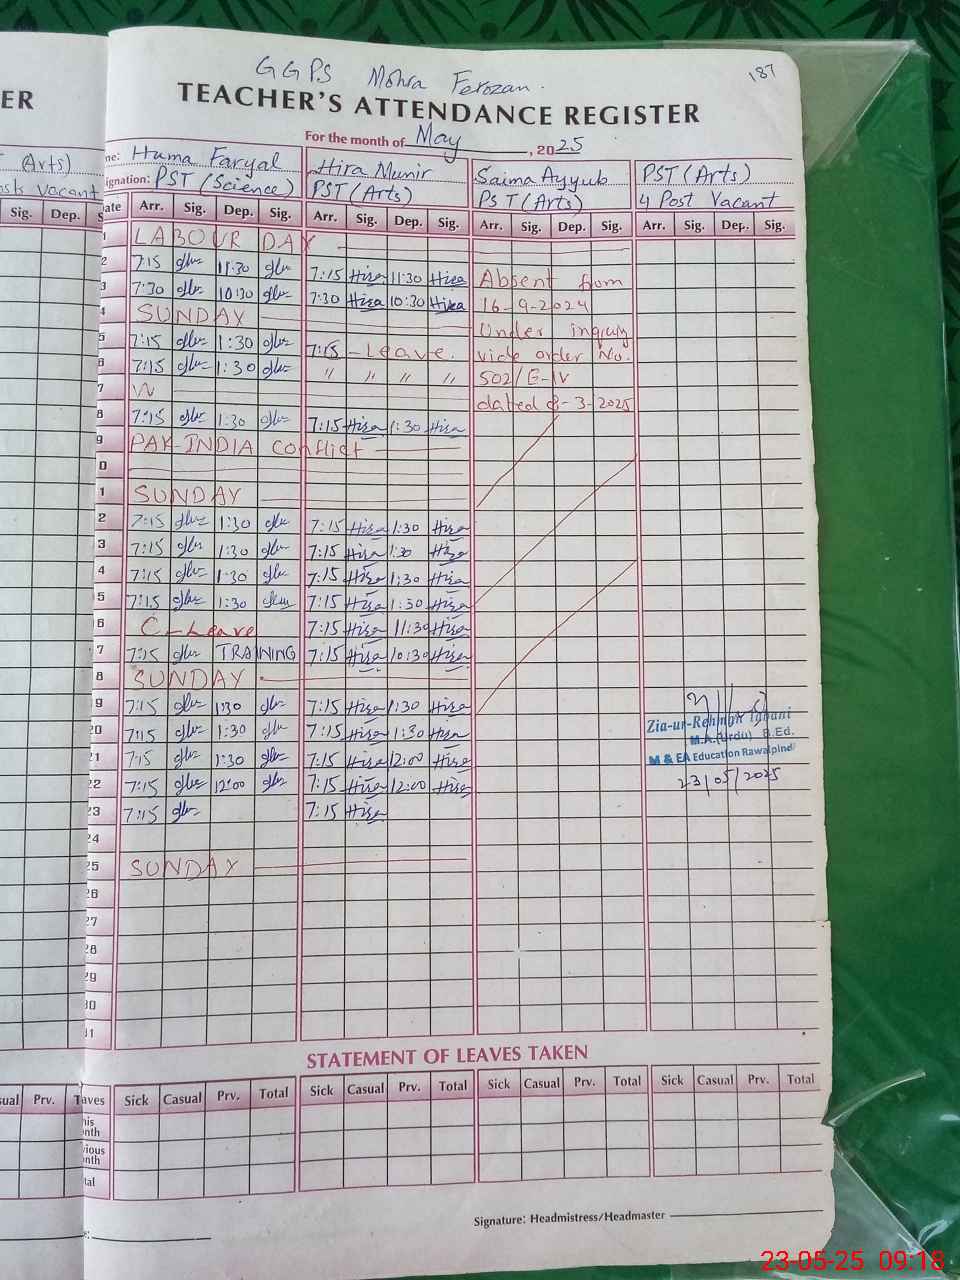 GGPS Mohra Ferozan.
187
ER
TEACHER'S ATTENDANCE REGISTER
For the month of May, 2025
Arts)
Vacant
Huma Faryal
Hira Munir
Saima Ayyub
PST (Arts)
ignation: PST (Science)
PST (Arts)
PST (Arts)
4 Post Vacant
Sig. Dep. S
ate Arr. Sig. Dep. Sig. Arr. Sig. Dep. Sig. Arr. Sig. Dep. Sig. Arr. Sig. Dep. Sig.
1 LABOUR DAY
2 7:15 11:30 7:15 Hira 11:30 Hira Absent from
3 7:30 10:30 7:30 Hira 10:30 Hira 16-9-2024
4 SUNDAY Under inquiry
5 7:15 1:30 7:15 - Leave. vide order No.
6 7:15 1:30 " " " " 502/E-IV
7 dated 8-3-2025
8 7:15 1:30 7:15 Hira 1:30 Hira
9 PAK-INDIA Conflict
0
1 SUNDAY
2 7:15 1:30 7:15 Hira 1:30 Hira
3 7:15 1:30 7:15 Hira 1:30 Hira
4 7:15 1:30 7:15 Hira 1:30 Hira
5 7:15 1:30 7:15 Hira 1:30 Hira
6 C-Leave 7:15 Hira 11:30 Hira
7 7:15 TRAINING 7:15 Hira 10:30 Hira
8 SUNDAY
9 7:15 1:30 7:15 Hira 1:30 Hira
20 7:15 1:30 7:15 Hira 1:30 Hira
21 7:15 1:30 7:15 Hira 12:00 Hira
22 7:15 12:00 7:15 Hira 12:00 Hira
23 7:15 7:15 Hira
24
25 SUNDAY
26
27
28
29
30
31
Zia-ur-Rehman
M.A.(Urdu) B.Ed.
M & EA Education Rawalpindi
23/05/2025
STATEMENT OF LEAVES TAKEN
sual Prv. T
aves Sick Casual Prv. Total Sick Casual Prv. Total Sick Casual Prv. Total Sick Casual Prv. Total
his
nth
vious
nth
tal
Signature: Headmistress/Headmaster
23-05-25 09:18